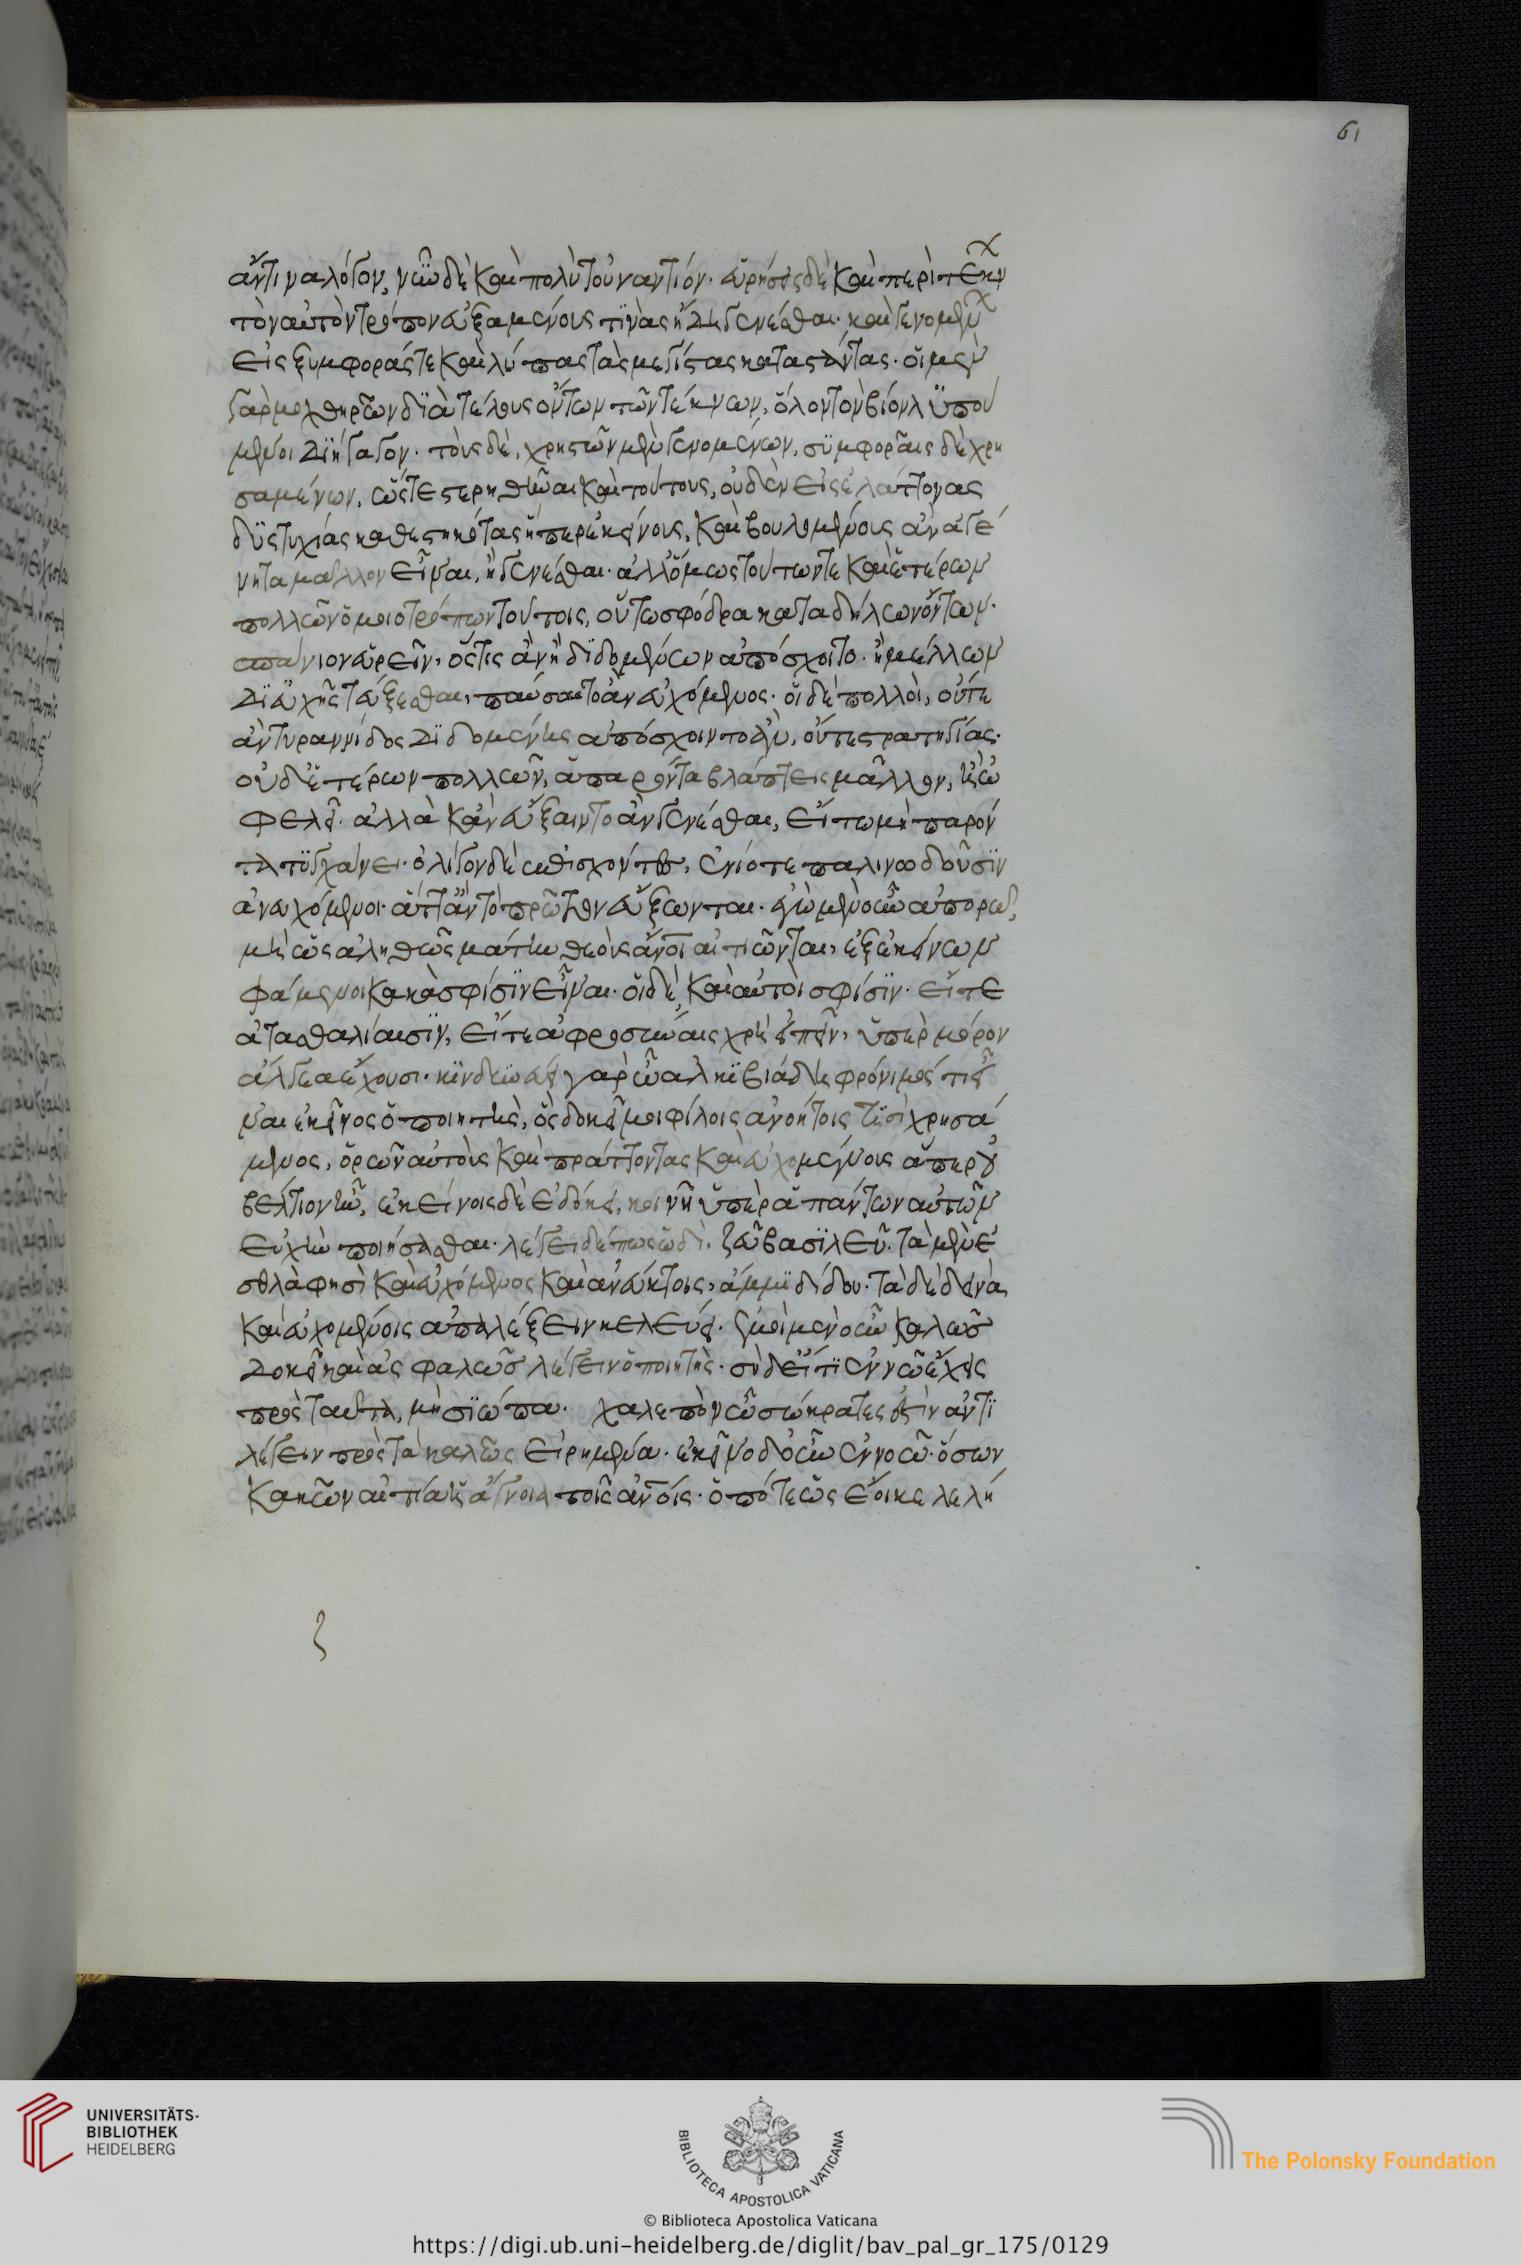 61
ἄντινα λόγον, νῶϊ δὲ καὶ πολὺ τοὐναντίον. εὑρήσεις δὲ καὶ περὶ τέκνων
τὸν αὐτὸν τρόπον εὐξαμένους τινὰς ἤδη γενέσθαι. καὶ γενομένων
εἰς ξυμφοράς τε καὶ λύπας τὰς μεγίστας καταστάντας. οἱ μὲν
γὰρ μοχθηρῶν διὰ τέλους ὄντων τῶν τέκνων, ὅλον τὸν βίον λυπού
μενοι διήγαγον. τοὺς δὲ, χρηστῶν μὲν γενομένων, συμφοραῖς δὲ χρη
σαμένων, ὥστε στερηθῆναι καὶ τούτους, οὐδὲν εἰς ἐλάττονας
δυστυχίας καθεστηκότας ἤπερ ἐκείνους, καὶ βουλομένους ἂν ἀγέ
νητα μᾶλλον εἶναι, ἢ γενέσθαι. ἀλλ' ὅμως τούτων τε καὶ ἑτέρων
πολλῶν ὁμοιοτρόπων τούτοις, οὕτω σφόδρα καταδήλων ὄντων.
σπάνιον εὑρεῖν. ὅστις ἂν ἢ διδομένων ἀπόσχοιτο. ἢ μέλλων
δι' εὐχῆς τεύξεσθαι, παύσαιτο ἂν εὐχόμενος. οἱ δὲ πολλοὶ, οὔτε
ἂν τυραννίδος διδομένης ἀπόσχοιντο ἂν, οὔτε στρατηγίας.
οὐδ' ἑτέρων πολλῶν, ἃ παρόντα βλάπτει μᾶλλον, ἢ ὠ
φελεῖ. ἀλλὰ κἂν εὔξαιντο ἂν γενέσθαι, εἴ τῳ μὴ παρόν
τα τυγχάνει. ὀλίγον δὲ ἐπισχόντες, ἐνίοτε παλινῳδοῦσιν
ἀνευχόμενοι. ἅττ' ἂν τὸ πρῶτον εὔξωνται. ἐγὼ μὲν οὖν ἀπορῶ,
μὴ ὡς ἀληθῶς μάτην θεοὺς ἄνθρωποι αἰτιῶνται, ἐξ ἐκείνων
φάμενοι κακὰ σφίσιν εἶναι. οἱ δὲ, καὶ αὐτοὶ σφίσιν. εἴτε
ἀτασθαλίαισιν, εἴτε ἀφροσύναις χρὴ εἰπεῖν, ὑπὲρ μόρον
ἄλγεα ἔχουσι. κινδυνεύει γὰρ ὦ ἀλκιβιάδη φρόνιμός τις εἶ
ναι ἐκεῖνος ὁ ποιητὴς, ὃς δοκεῖ μοι φίλοις ἀνοήτοις τισὶ χρησά
μενος, ὁρῶν αὐτοὺς καὶ πράττοντας καὶ εὐχομένους ἅπερ οὐ
βέλτιον ἦν, ἐκείνοις δὲ ἐδόκει, κοινῇ ὑπὲρ ἁπάντων αὐτῶν
εὐχὴν ποιήσασθαι. λέγει δέ πως ὡδὶ. ζεῦ βασιλεῦ. τὰ μὲν ἐ
σθλὰ φησὶ καὶ εὐχόμενοις καὶ ἀνεύκτοις, ἄμμι δίδου. τὰ δὲ δεινὰ
καὶ εὐχομένοις ἀπαλέξειν κελεύει. ἐμοὶ μὲν οὖν καλῶς
δοκεῖ καὶ ἀσφαλῶς λέγειν ὁ ποιητής. σὺ δ' εἴ τι ἐν νῷ ἔχεις
πρὸς ταῦτα, μὴ σιώπα. χαλεπὸν ὦ σώκρατες ἐστὶν ἀντι
λέγειν πρὸς τὰ καλῶς εἰρημένα. ἐκεῖνο δ' οὖν ἐννοῶ. ὅσων
κακῶν αἰτία ἡ ἄγνοια τοῖς ἀνθρώποις. ὁπότε ὡς ἔοικε λελή
UNIVERSITÄTS-
BIBLIOTHEK
HEIDELBERG
BIBLIOTECA APOSTOLICA VATICANA
The Polonsky Foundation
© Biblioteca Apostolica Vaticana
https://digi.ub.uni-heidelberg.de/diglit/bav_pal_gr_175/0129